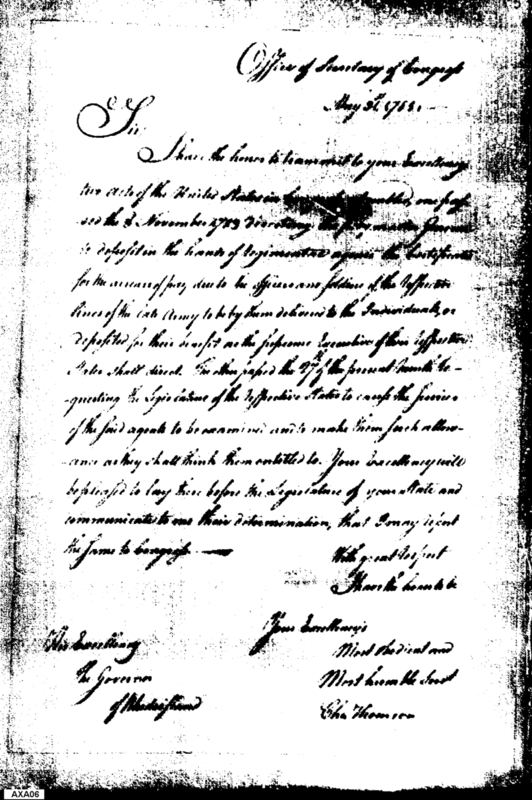 Office of Secretary of Congress
May 31. 1785.
Sir
I have the honor to transmit to your Excellency
two acts of the United States in assembled, one pas-
sed the 3 November 1783 directing the paymaster General
to deposit in the hands of regimental agents the Certificates
for the arrears of pay due to the officers and soldiers of the respective
lines of the late Army to be by them delivered to the Individuals, or
deposited for their benefit as the supreme Executive of their respective
States shall direct. The other passed the 27th of the present Month re-
questing the Legislatures of the respective States to cause the Services
of the said agents to be examined and to make them such allow-
ance as they shall think them entitled to. Your Excellency will
be pleased to lay these before the Legislature of your State and
communicate to me their determination, that I may report
the same to Congress.
With great respect
I have the honor to be
Your Excellency's
Most obedient and
Most humble Servt
Chas Thomson
His Excellency
The Governor
of Rhode Island
AXA06